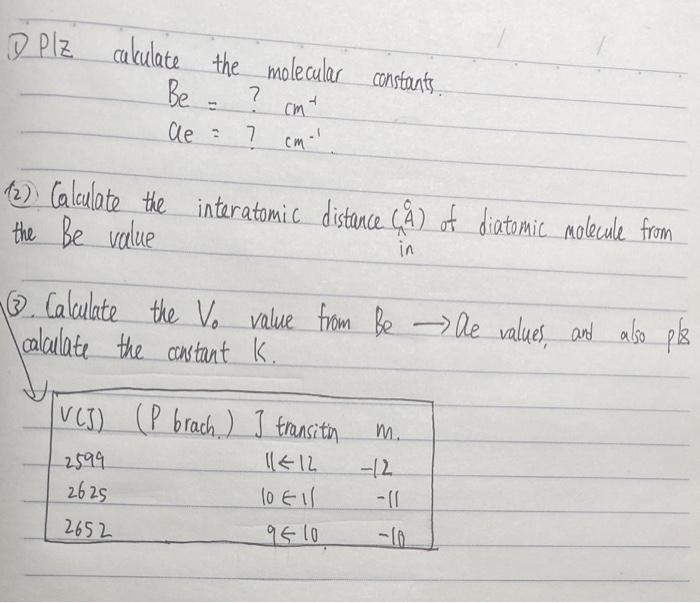 ① Plz calculate the molecular constants.
Be = ? cm⁻¹
ae = ? cm⁻¹.
(2) Calculate the interatomic distance (Å) of diatomic molecule from
in
the Be value
③. Calculate the V₀ value from Be → ae values, and also plz
calculate the constant K.
V(J) (P brach.) J transitin m.
2599 11←12 -12
2625 10←11 -11
2652 9←10 -10